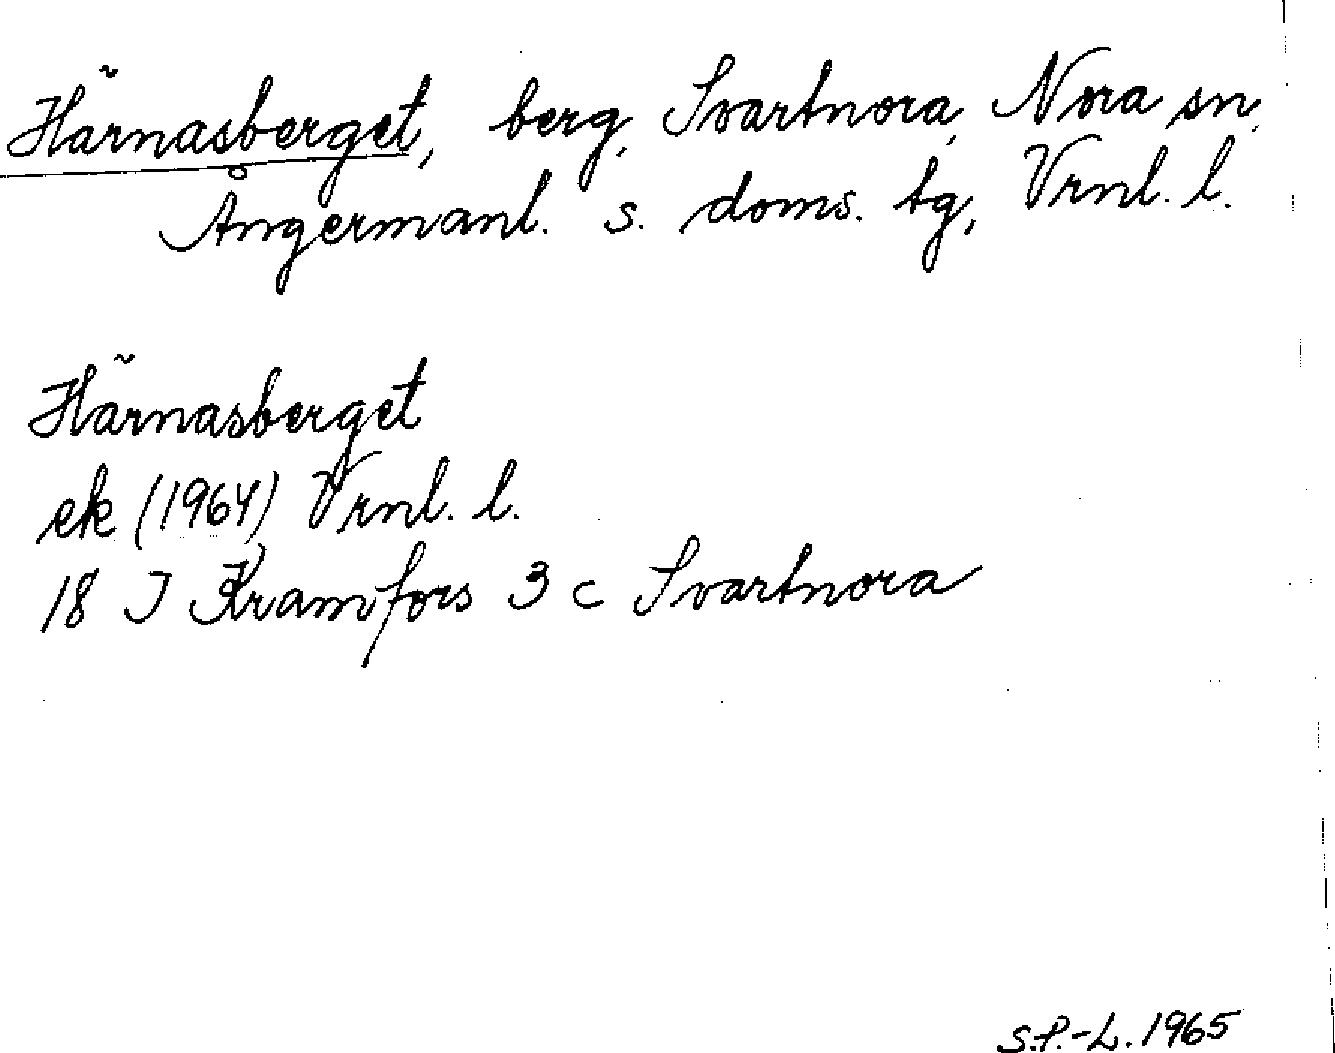 Härnasberget, berg, Svartnora, Nora sn,
Ångermanl. s. doms. tg, Vrnl. l.
Härnasberget
ek (1964) Vrnl. l.
18 J Kramfors 3 c Svartnora
S.P.-L. 1965